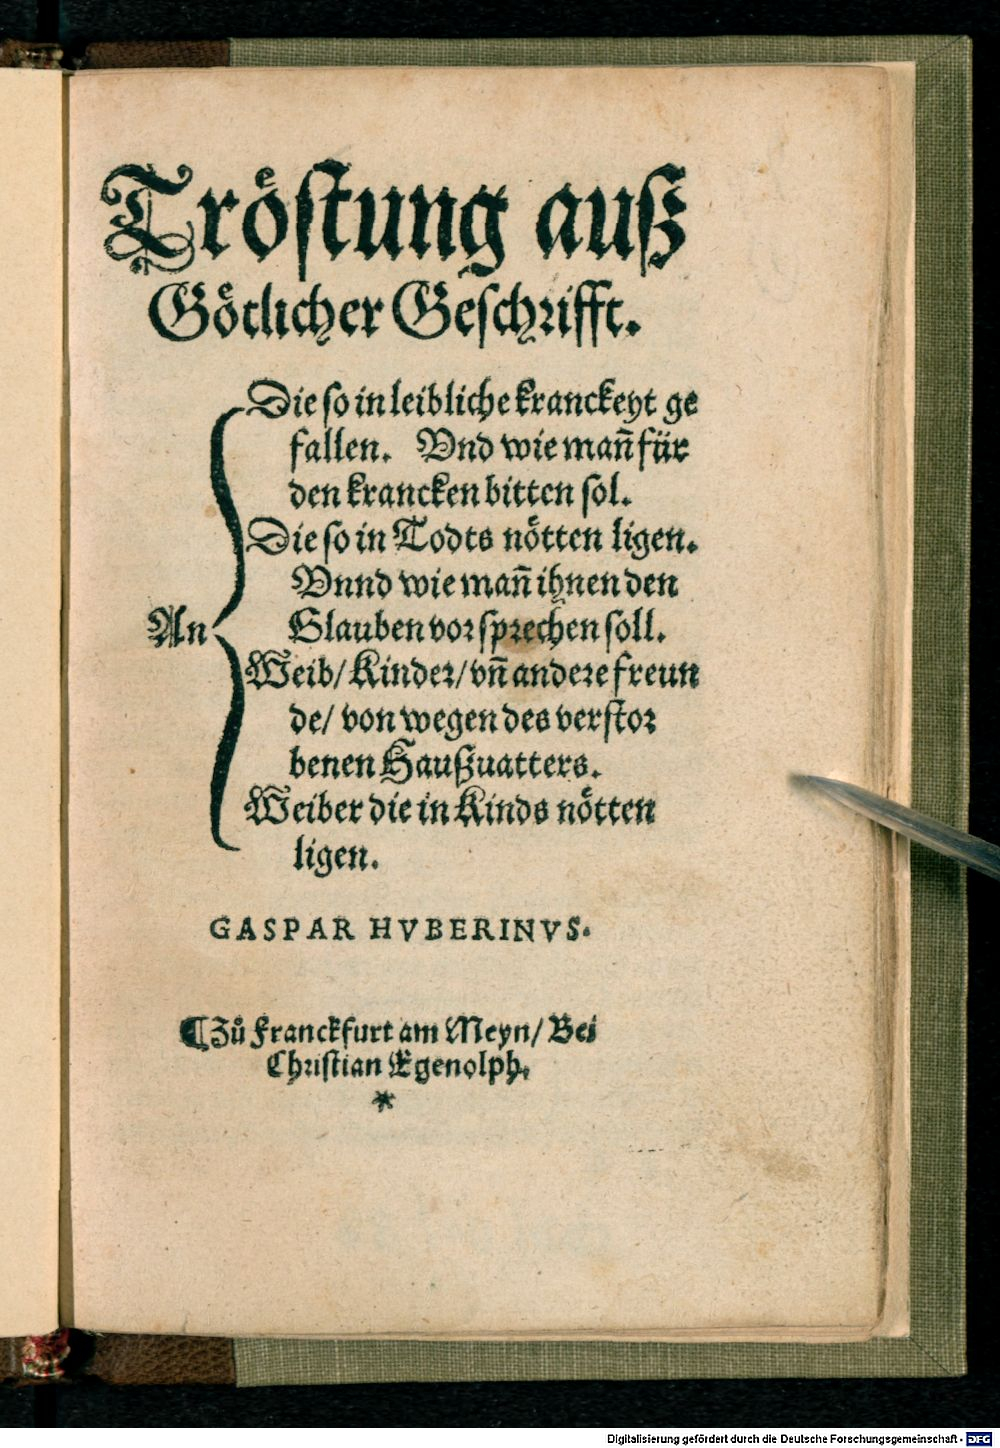 Tröstung auß
Götlicher Geschrifft.
Die so in leibliche kranckeyt ge
fallen. Vnd wie mañ für
den krancken bitten sol.
Die so in Todts nötten ligen.
Vnnd wie mañ ihnen den
An Glauben vor sprechen soll.
Weib/ Kinder/ vñ andere freun
de/ von wegen des verstor
benen Haußuatters.
Weiber die in Kinds nötten
ligen.
GASPAR HVBERINVS.
¶Zů Franckfurt am Meyn/ Bei
Christian Egenolph.
*
Digitalisierung gefördert durch die Deutsche Forschungsgemeinschaft - DFG